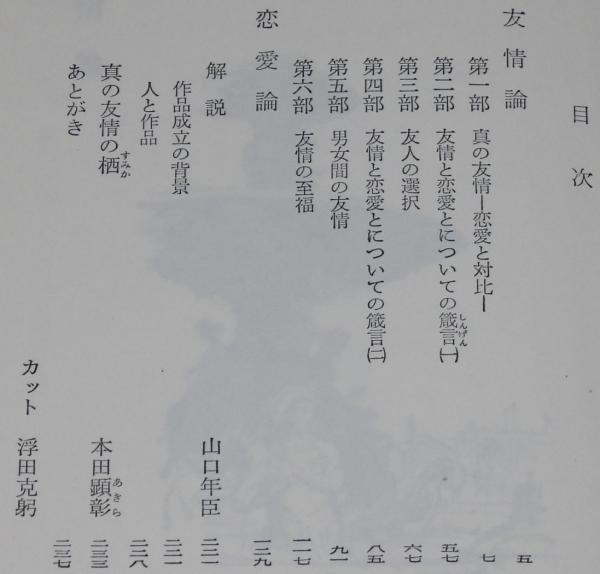 目次
友情論 五
第一部 真の友情―恋愛と対比― 七
第二部 友情と恋愛とについての箴言(一) 五七
しんげん
第三部 友人の選択 六七
第四部 友情と恋愛とについての箴言(二) 八五
第五部 男女間の友情 九一
第六部 友情の至福 一一七
恋愛論 一二九
解説 山口年臣 二二一
作品成立の背景 二二一
人と作品 二二八
真の友情の栖 本田顕彰 二三三
すみか あきら
あとがき 二三七
カット 浮田克躬